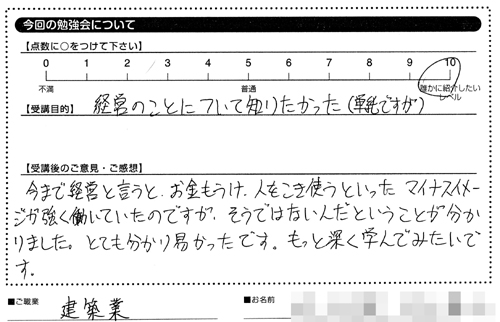 今回の勉強会について
【点数に○をつけて下さい】
0 1 2 3 4 5 6 7 8 9 10
不満 普通 誰かに紹介したいレベル
【受講目的】 経営のことについて知りたかった(単純ですが)
【受講後のご意見・ご感想】
今まで経営と言うと、お金もうけ、人をこき使うといった マイナスイメー
ジが強く働いていたのですが、そうではないんだということが分か
りました。とても分かり易かったです。もっと深く学んでみたいで
す。
■ご職業 建築業 ■お名前